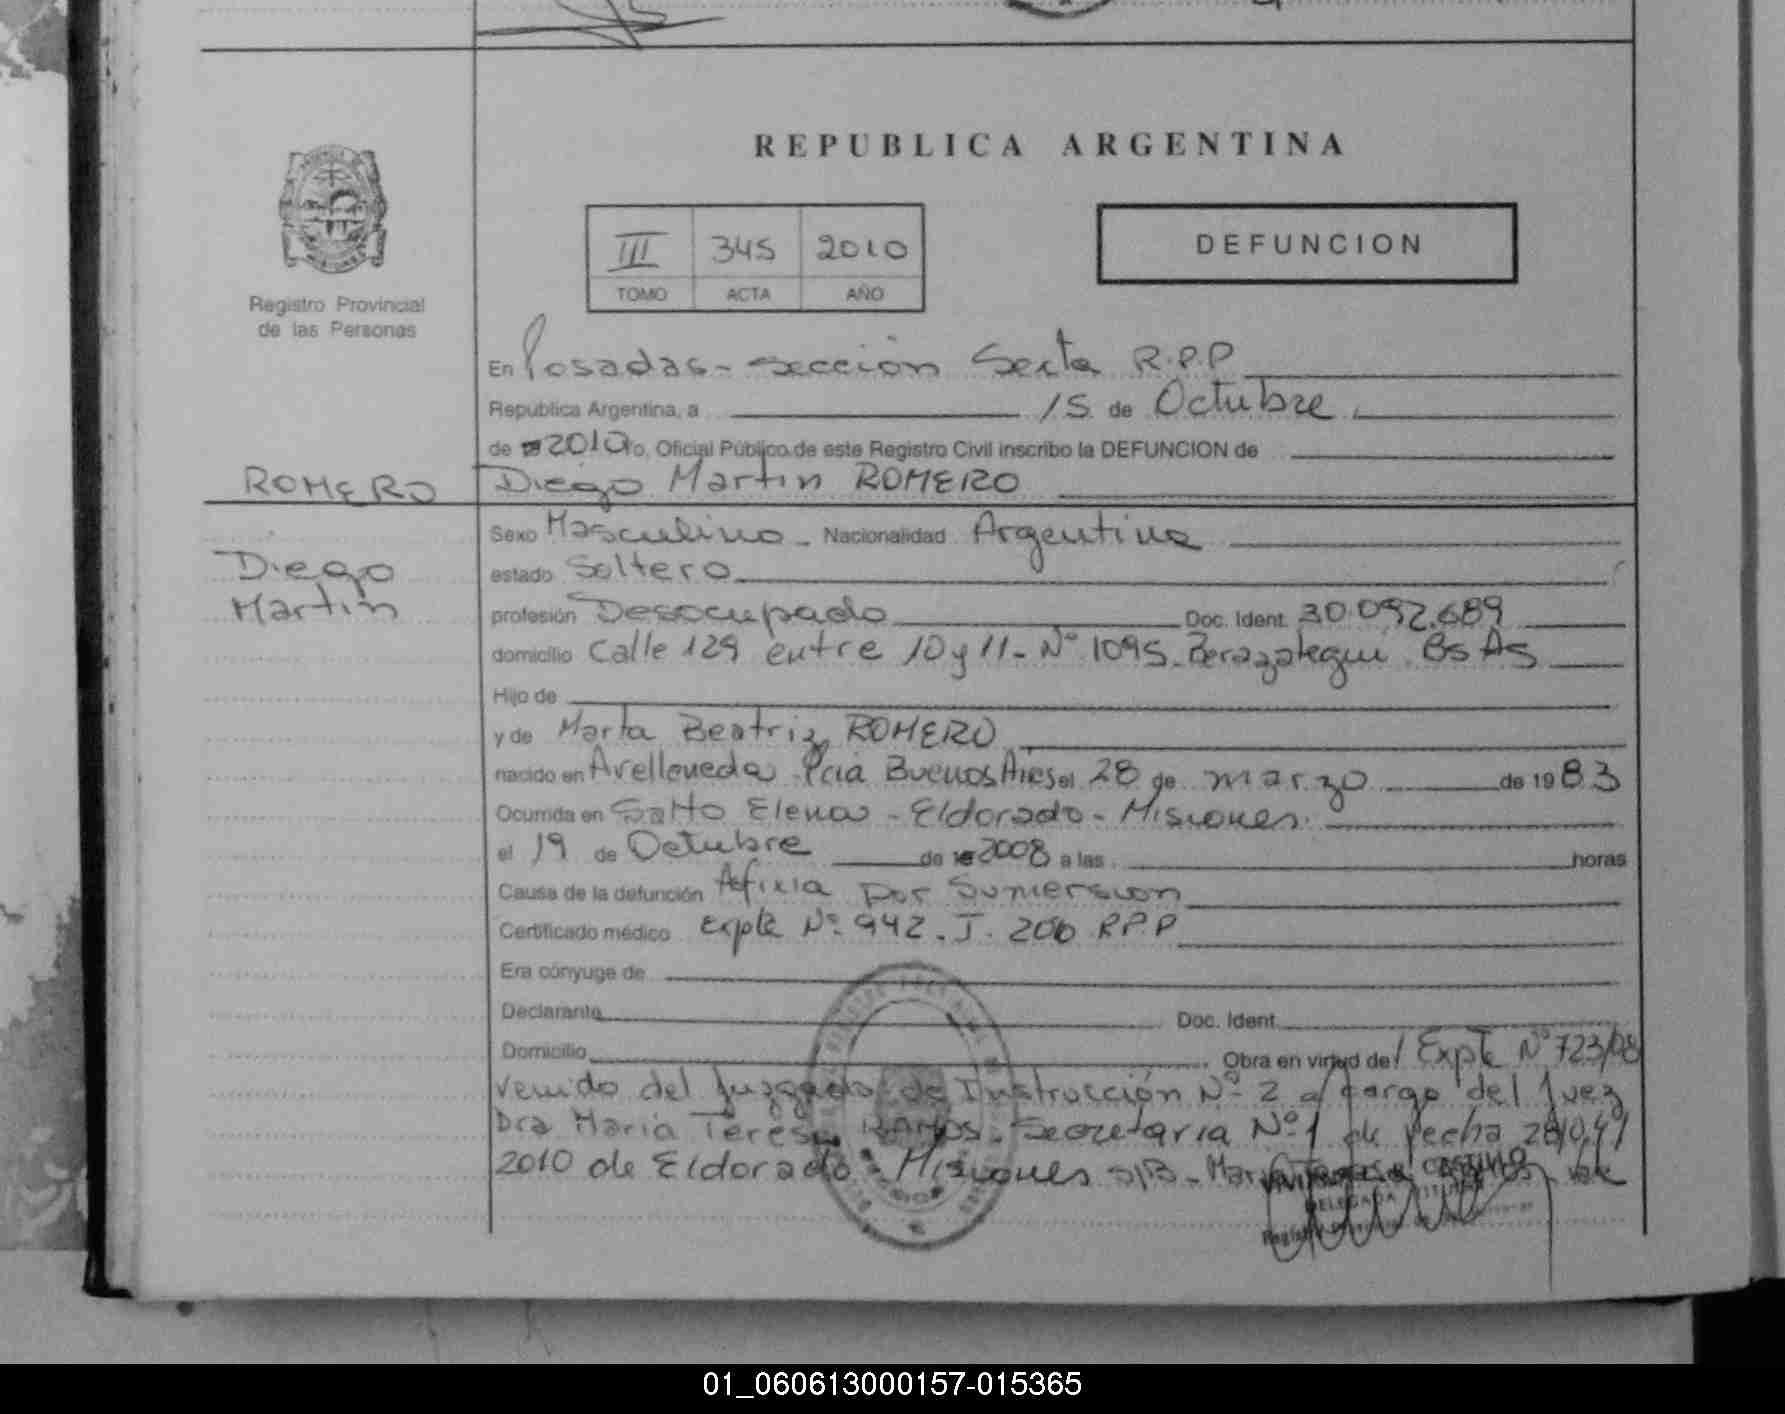 REPUBLICA ARGENTINA
III 345 2010
TOMO ACTA AÑO
DEFUNCION
Registro Provincial
de las Personas
En Posadas - sección Sexta R.P.P
República Argentina, a 15 de Octubre
de 2010 yo, Oficial Público de este Registro Civil inscribo la DEFUNCION de
ROMERO
Diego Martin ROMERO
Diego
Martin
Sexo Masculino - Nacionalidad Argentina
estado Soltero
profesión Desocupado Doc. Ident. 30.092.689
domicilio Calle 129 entre 10 y 11 - Nº 1095 - Berazategui Bs As
Hijo de
y de Marta Beatriz ROMERO
nacido en Avellaneda Pcia Buenos Aires el 28 de marzo de 1983
Ocurrida en Salto Elena - Eldorado - Misiones.
el 19 de Octubre de 2008 a las horas
Causa de la defunción Asfixia por Sumersion
Certificado médico Expte Nº 942. J. R.P.P
Era cónyuge de
Declarante Doc. Ident.
Domicilio Obra en virtud de Expte Nº 723/08
venido del Juzgado de Instrucción Nº 2 a cargo del Juez
Dra Maria Teresa RAMOS - Secretaria Nº 1 de fecha
2010 de Eldorado Misiones
01_060613000157-015365